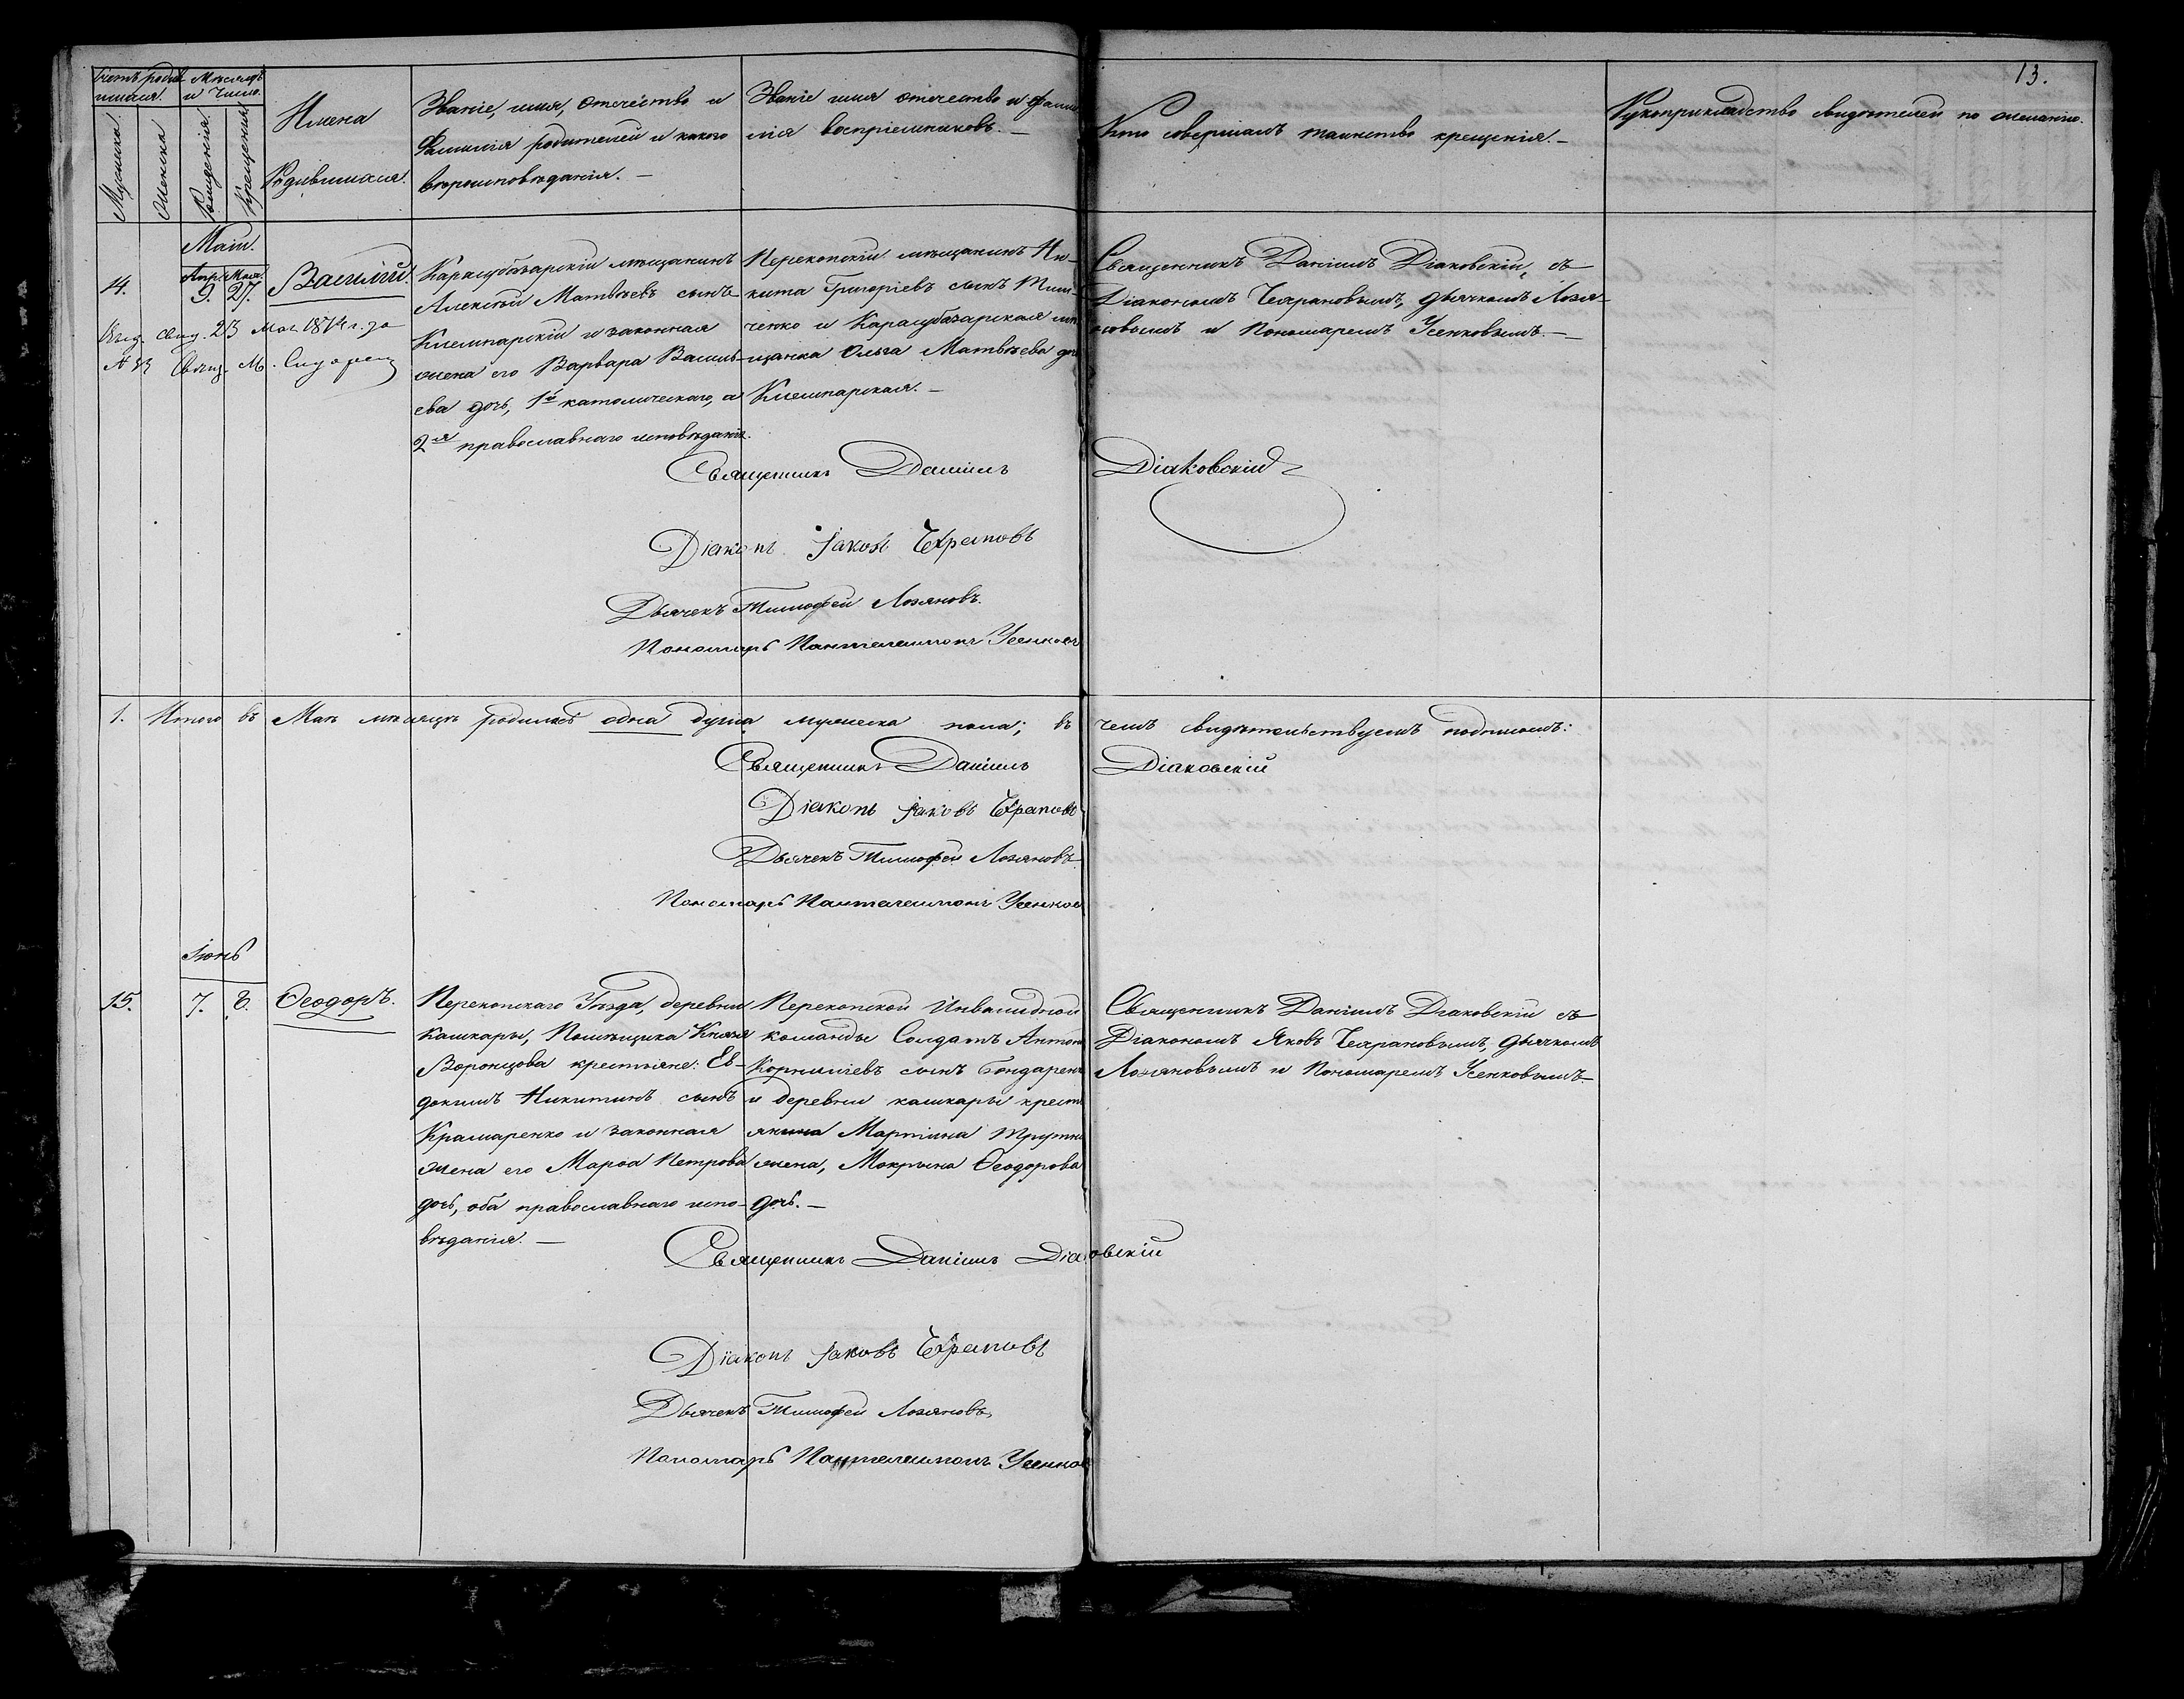 13.
Счетъ родив-
шихся.
Мѣсяцъ
и Число.
Мужеска
Женска
Рожденія.
Крещенія
Имена
Родившихся.
Званіе, имя, отечество и
фамилія родителей и какого
вѣроисповѣданія. —
Званіе имя отечество и фами
лія воспріемниковъ. —
Кто совершалъ таинство крещенія. —
Рукоприкладство свидѣтелей по желанію.
Маій.
Апр. Маія.
14.
9. 27.
Василій.
Выд. свид. 23 Мая 1874 г. за
№ 83 Свящ. М. Сидоренко
Карасубазарскій мѣщанинъ
Алексѣй Матвѣевъ сынъ
Клемпарскій и законная
жена его Варвара Василь-
ева дочь, 1й католическаго, а
2я православнаго исповѣданія.
Перекопскій мѣщанинъ Ни-
кита Григоріевъ сынъ Тим-
ченко и Карасубазарская мѣ
щанка Ольга Матвѣева дочь
Клемпарская. —
Священникъ Даніилъ Діаковскій, съ
Діакономъ Чехрановымъ, дьячкомъ Лозя-
новымъ и Пономаремъ Усенковымъ. —
Священникъ Даніилъ Діаковскій
Діаконъ Іаковъ Чехрановъ
Дьячекъ Тимофей Лозяновъ.
Пономарь Пантелеимонъ Усенковъ
1. Итого въ Маѣ мѣсяцѣ родилась одна душа мужеска пола; въ чемъ свидѣтельствуемъ подписомъ:
Священникъ Даніилъ Діаковскій
Діаконъ Іаковъ Чехрановъ
Дьячекъ Тимофей Лозяновъ
Пономарь Пантелеимонъ Усенков
Іюнь
15.
7. 8.
Ѳеодоръ.
Перекопскаго Уѣзда, деревни
Кашкары, Помѣщика Князя
Воронцова крестьяне: Ев-
докимъ Никитинъ сынъ
Крамаренко и законная
жена его Марѳа Петрова
дочь, оба православнаго испо-
вѣданія. —
Перекопской Инвалидной
команды Солдатъ Антонъ
Корниліевъ сынъ Бондаренк
и деревни кашкары крестъ
янина Мартина Трутня
жена, Мокрына Ѳеодорова
дочь. —
Священникъ Даніилъ Діаковскій съ
Діакономъ Яковъ Чехрановымъ, дьячкомъ
Лозяновымъ и Пономаремъ Усенковымъ. —
Священникъ Даніилъ Діаковскій
Діаконъ Іаковъ Чехрановъ
Дьячекъ Тимофей Лозяновъ
Пономарь Пантелеимонъ Усенков